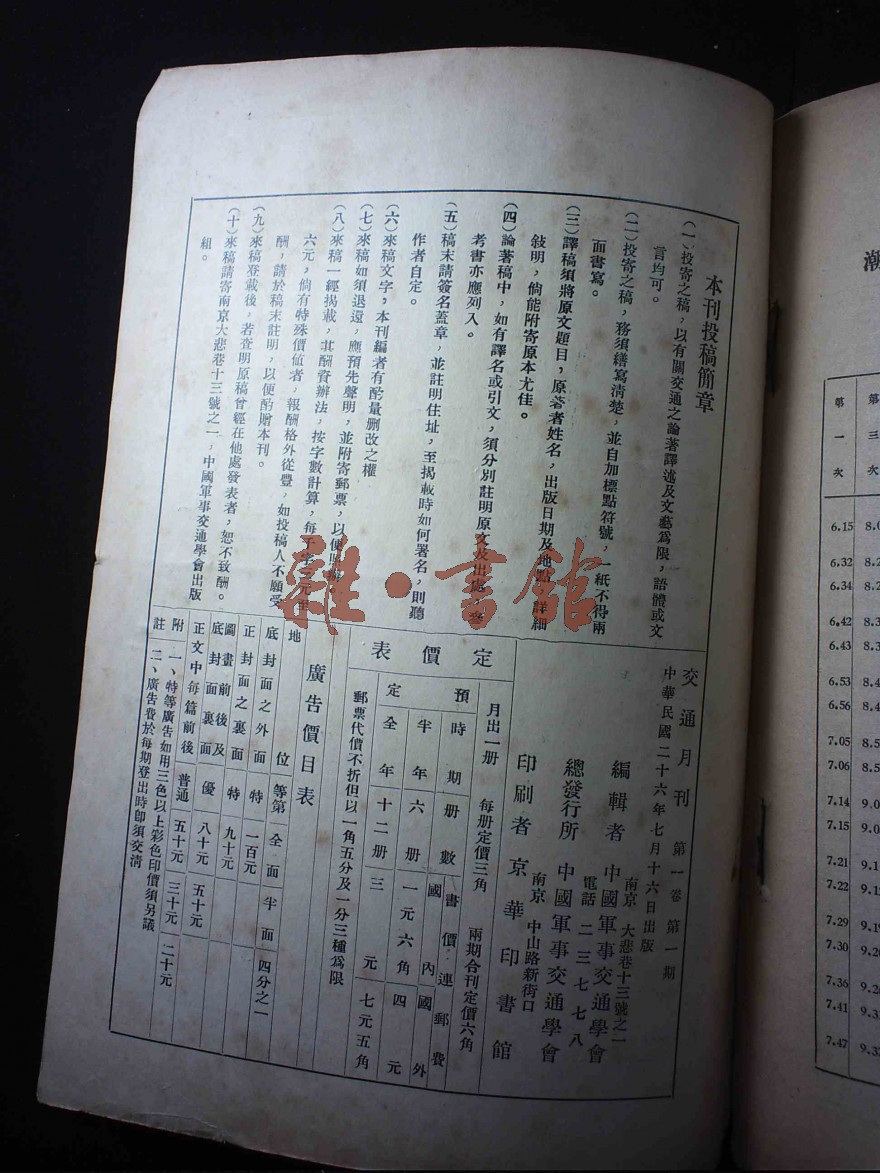 本刊投稿簡章
(一)投寄之稿，以有關交通之論著譯述及文藝爲限，語體或文
言均可。
(二)投寄之稿，務須繕寫清楚，並自加標點符號，一紙不得兩
面書寫。
(三)譯稿須將原文題目，原著者姓名，出版日期及地點，詳細
敍明，倘能附寄原本尤佳。
(四)論著稿中，如有譯名或引文，須分別註明原文及出處，參
考書亦應列入。
(五)稿末請簽名蓋章，並註明住址，至揭載時如何署名，則聽
作者自定。
(六)來稿文字，本刊編者有酌量删改之權
(七)來稿如須退還，應預先聲明，並附寄郵票，以便
(八)來稿一經揭載，其酬資辦法，按字數計算，每千字元至
六元，倘有特殊價值者，報酬格外從豐，如投稿人不願受
酬，請於稿末註明，以便酌贈本刊。
(九)來稿登載後，若查明原稿曾經在他處發表者，恕不致酬。
(十)來稿請寄南京大悲巷十三號之一，中國軍事交通學會出版
組。
交通月刊 第一卷第一期
中華民國二十六年七月十六日出版
編輯者 中國軍事交通學會
南京 大悲巷十三號之一
電話 二三七七八
總發行所 中國軍事交通學會
南京 中山路新街口
印刷者 京華印書館
定價表
月出一册 每册定價三角 兩期合刊定價六角
預定
時期 册數 書價連郵費
國內 國外
半年 六册 一元六角 四元
全年 十二册 三元 七元五角
郵票代價不折但以一角五分及一分三種爲限
廣告價目表
地位 等第 全面 半面 四分之一
底封面之外面 特 一百元
正封面之裏面 特 九十元
圖畫前後及底封面裏面 優 八十元 五十元
正文中每篇前後 普通 五十元 三十元 二十元
附註 一、特等廣告如用三色以上彩色印價須另議
二、廣告費於每期登出時卽須交清
雜·書館
潮
第一次
第三次
6.15
6.32
6.34
6.42
6.43
6.53
6.56
7.05
7.06
7.14
7.15
7.21
7.22
7.29
7.30
7.36
7.41
7.47